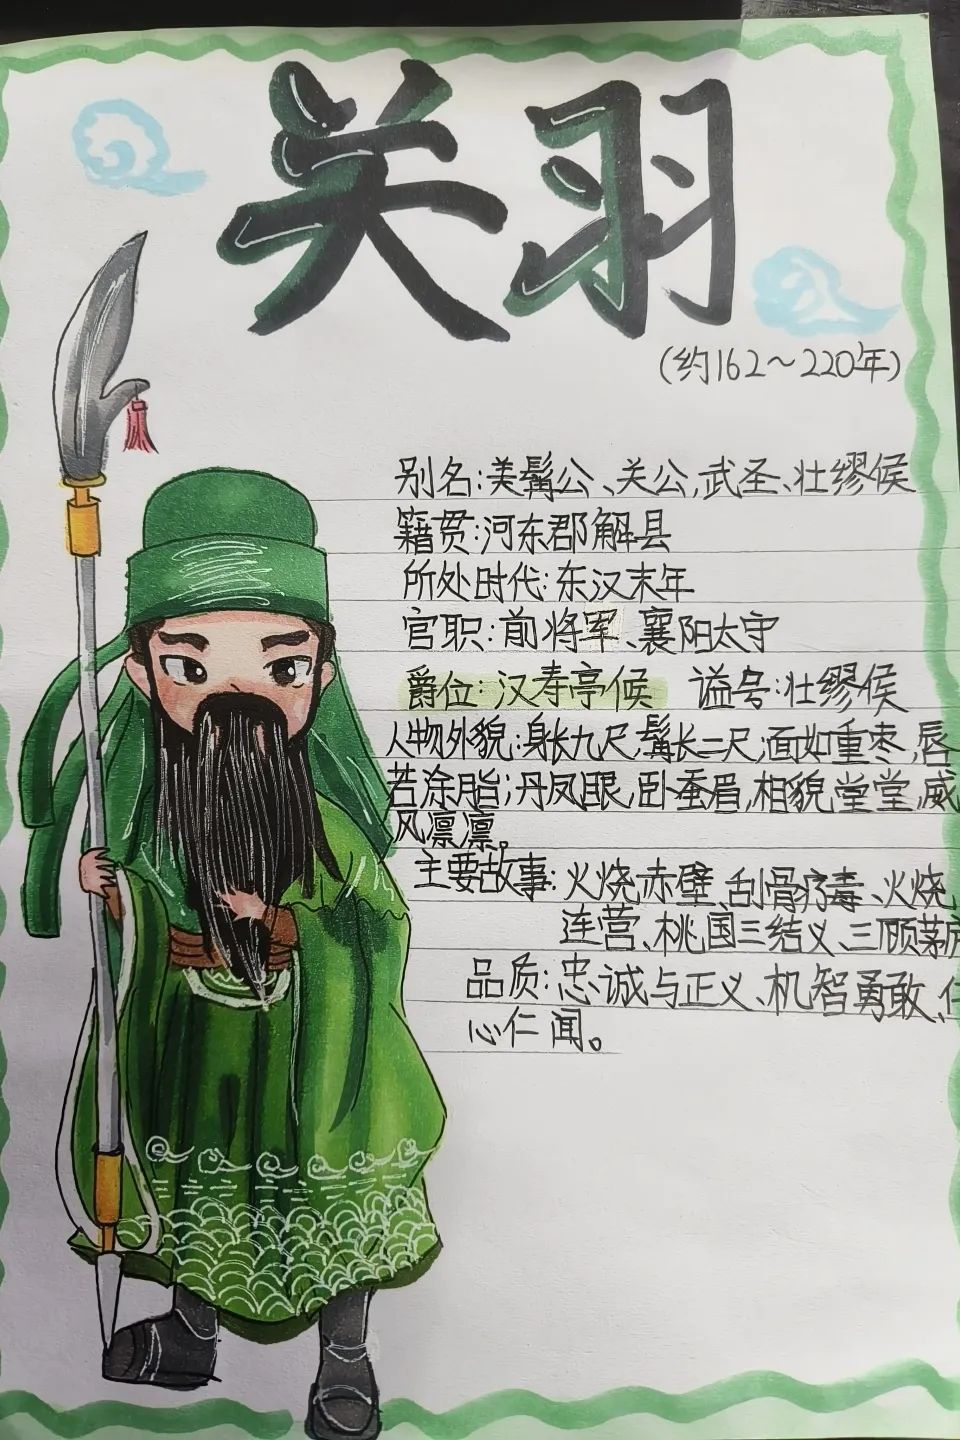 关羽
(约162～220年)
别名:美髯公、关公,武圣、壮缪侯
籍贯:河东郡解县
所处时代:东汉末年
官职:前将军、襄阳太守
爵位:汉寿亭候 谥号:壮缪侯
人物外貌:身长九尺,髯长二尺;面如重枣,唇
若涂脂;丹凤眼,卧蚕眉,相貌堂堂,威
风凛凛。
主要故事:火烧赤壁、刮骨疗毒、火烧
连营、桃园三结义、三顾茅庐
品质:忠诚与正义、机智勇敢、仁
心仁闻。